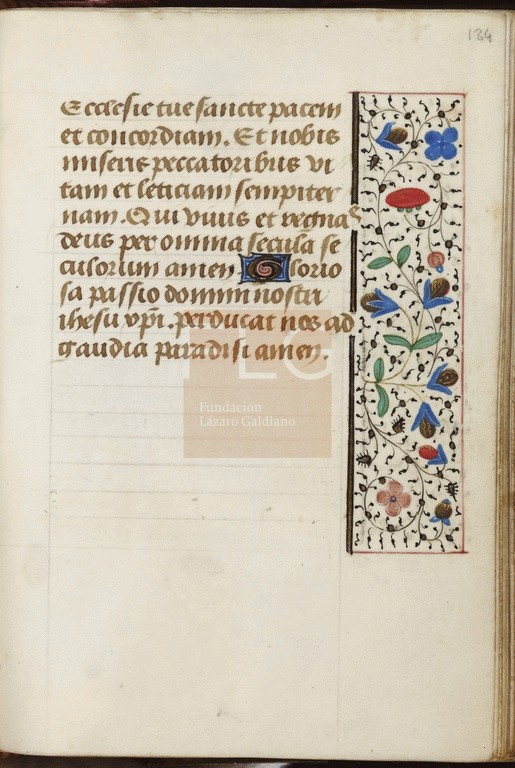 134
Ecclesie tue sancte pacem
et concordiam. Et nobis
miseris peccatoribus vi
tam et leticiam sempiter
nam. Qui viuis et regnas
deus per omnia secula se
culorum amen. Glorio
sa passio domini nostri
ihesu xpi. perducat nos ad
gaudia paradisi amen.
FLG
Fundación
Lázaro Galdiano